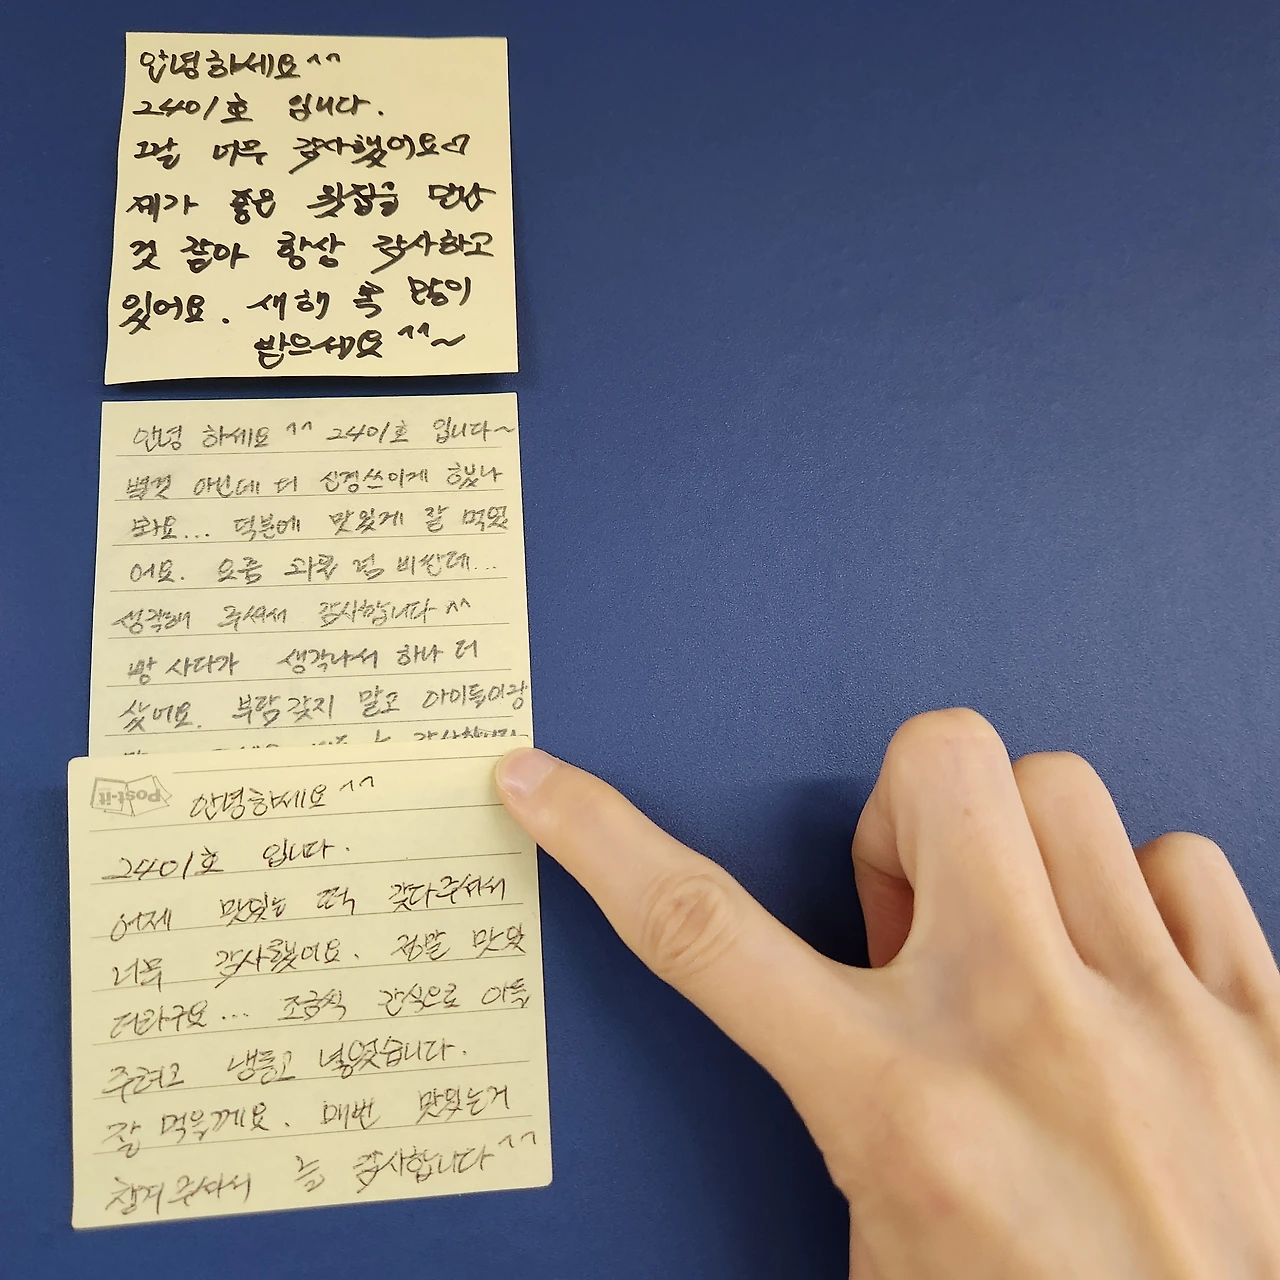 안녕하세요^^
2401호 입니다.
그날 너무 감사했어요♡
제가 좋은 윗집을 만난
것 같아 항상 감사하고
있어요. 새해 복 많이
받으세요^^~
안녕 하세요^^ 2401호 입니다~
별것 아닌데 더 신경쓰이게 했나
봐요... 덕분에 맛있게 잘 먹었
어요. 요즘 과일 넘 비싼데...
생각해 주셔서 감사합니다^^
빵 사다가 생각나서 하나 더
샀어요. 부담갖지 말고 아이들이랑
Post-it
안녕하세요^^
2401호 입니다.
어제 맛있는 떡 갖다주셔서
너무 감사했어요. 정말 맛있
더라구요... 조금씩 간식으로 아들
주려고 냉동고 넣었습니다.
잘 먹을께요. 매번 맛있는거
챙겨주셔서 늘 감사합니다^^